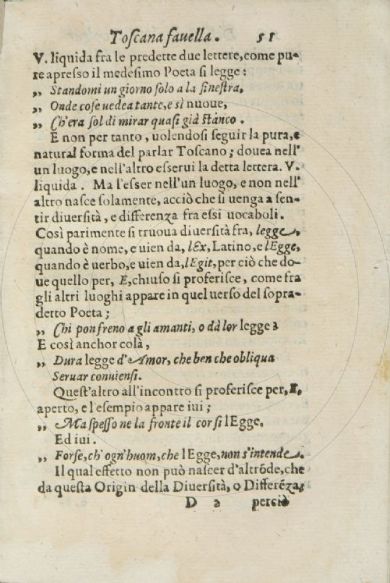 Toscana fauella. 51
V. liquida fra le predette due lettere, come pu-
re apresso il medesimo Poeta si legge:
„ Standomi un giorno solo a la finestra,
„ Onde cose uedea tante, e sì nuoue,
„ Ch'era sol di mirar quasi già stanco.
E non per tanto, uolendosi seguir la pura, e
natural forma del parlar Toscano; douea nell'
un luogo, e nell'altro esserui la detta lettera. V.
liquida. Ma l'esser nell'un luogo, e non nell'
altro nasce solamente, acciò che si uenga a sen-
tir diuersità, e differenza fra essi uocaboli.
Così parimente si truoua diuersità fra, legge,
quando è nome, e uien da, lEx, Latino, e lEgge,
quando è uerbo, e uien da, lEgit, per ciò che do-
ue quello per, E, chiuso si proferisce, come fra
gli altri luoghi appare in quel uerso del sopra-
detto Poeta;
„ Chi pon freno a gli amanti, o dà lor legge?
E così anchor colà,
„ Dura legge d'Amor, che ben che obliqua
Seruar conuiensi.
Quest'altro all'incontro si proferisce per, E,
aperto, e l'esempio appare iui;
„ Ma spesso ne la fronte il cor si lEgge.
Ed iui.
„ Forse, ch'ogn'huom, che lEgge, non s'intende.
Il qual effetto non può nascer d'altrõde, che
da questa Origin della Diuersità, o Differẽza,
D 2 perciò